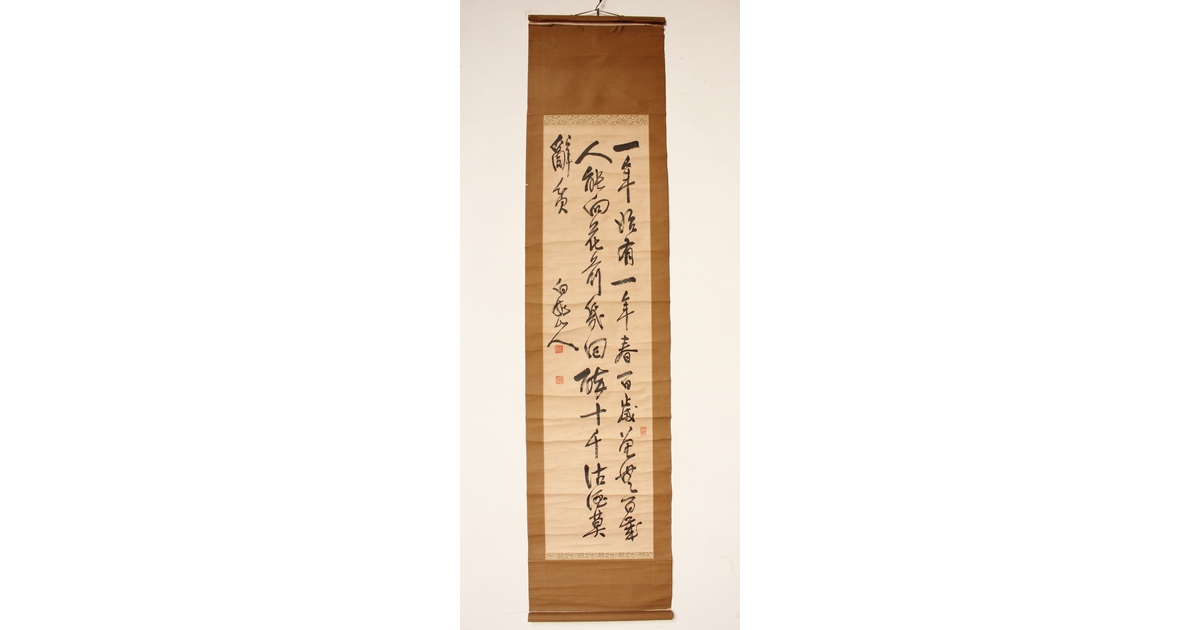 一年始有一年春百歲曾無百歲
人能向花前幾回醉十千沽酒莫
辭貧
白山人